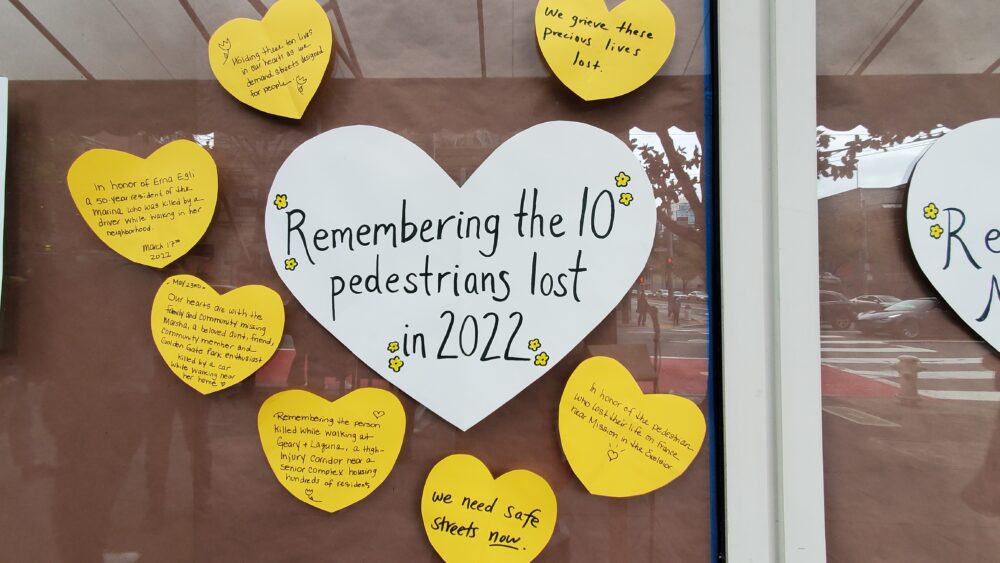 Holding these ten lives
in our hearts as we
demand streets designed
for people
We grieve these
precious lives
lost.
In honor of Erna Egli
a 50 year resident of the
Marina who was killed by a
driver while walking in her
neighborhood.
March 17th
2022
Remembering the 10
pedestrians lost
in 2022
- May 23rd -
Our hearts are with the
family and community missing
Marsha, a beloved aunt, friend,
community member and
Golden Gate Park enthusiast
killed by a car
while walking near
her home
Remembering the person
killed while walking at
Geary + Laguna, a high-
injury corridor near a
senior complex housing
hundreds of residents
In honor of the pedestrian
who lost their life on France
near Mission in the Excelsior
we need safe
streets now.
Re